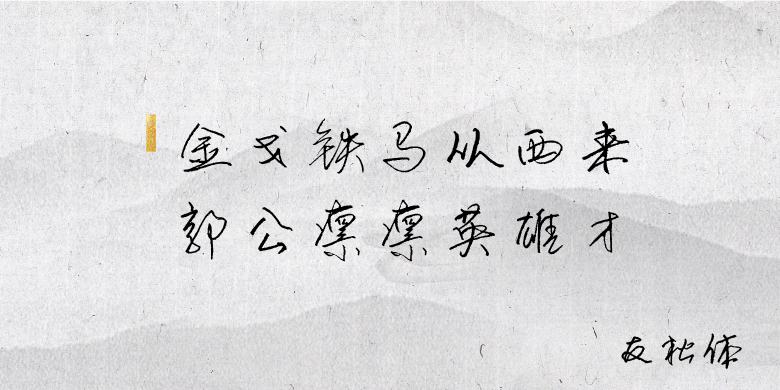 金戈铁马从西来
郭公凛凛英雄才
友松体